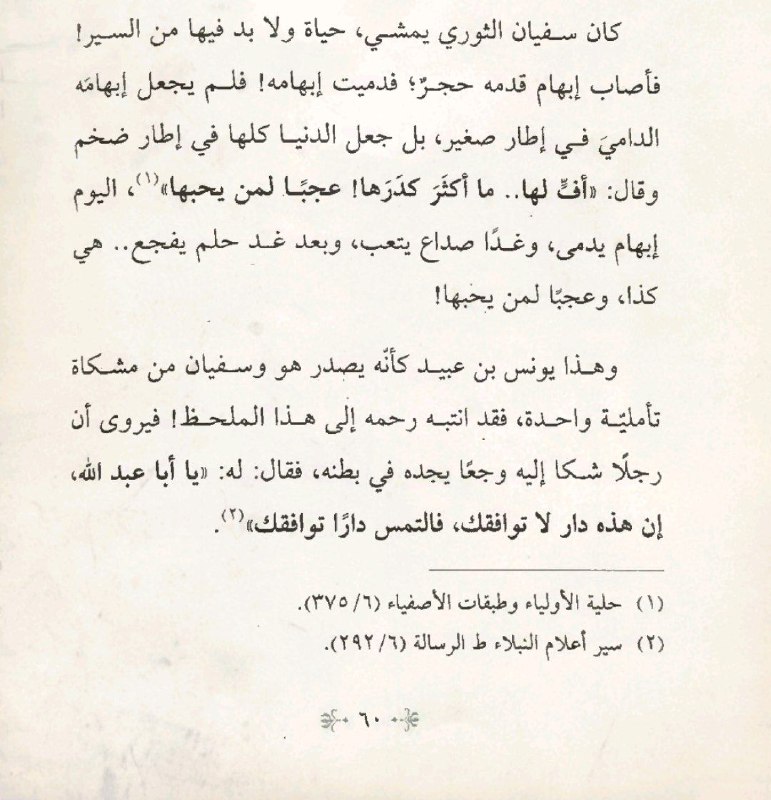 كان سفيان الثوري يمشي، حياة ولا بد فيها من السير!
فأصاب إبهام قدمه حجرٌ؛ فدميت إبهامه! فلم يجعل إبهامَه
الداميَ في إطار صغير، بل جعل الدنيا كلها في إطار ضخم
وقال: «أفٍّ لها.. ما أكثَرَ كدَرَها! عجبًا لمن يحبها»(١)، اليوم
إبهام يدمى، وغدًا صداع يتعب، وبعد غد حلم يفجع.. هي
كذا، وعجبًا لمن يحبها!
وهذا يونس بن عبيد كأنّه يصدر هو وسفيان من مشكاة
تأمليّة واحدة، فقد انتبه رحمه إلى هذا الملحظ! فيروى أن
رجلًا شكا إليه وجعًا يجده في بطنه، فقال: له: «يا أبا عبد الله،
إن هذه دار لا توافقك، فالتمس دارًا توافقك»(٢).
(١) حلية الأولياء وطبقات الأصفياء (٦/ ٣٧٥).
(٢) سير أعلام النبلاء ط الرسالة (٦/ ٢٩٢).
٦٠